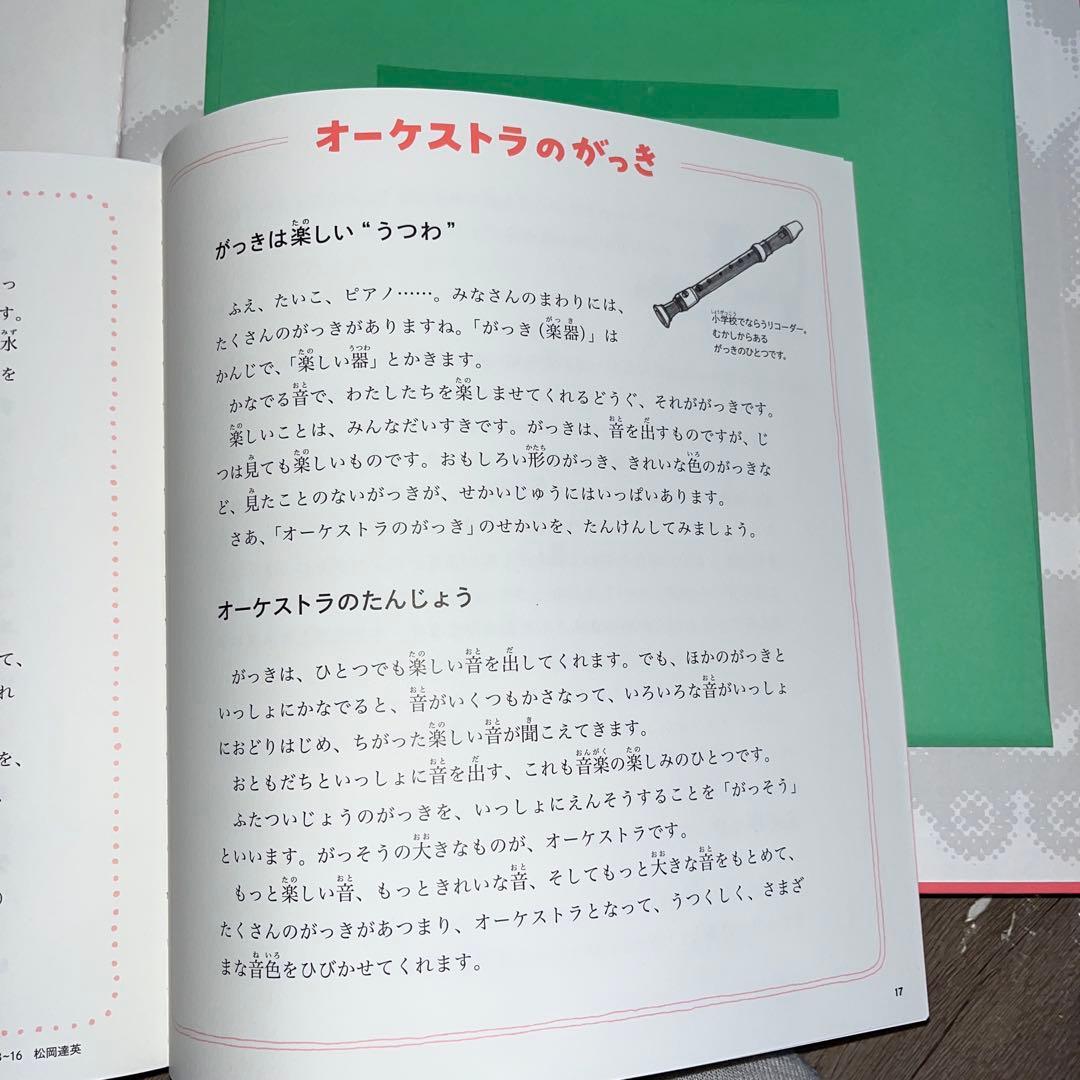 オーケストラのがっき
がっきは楽しい“うつわ”
ふえ、たいこ、ピアノ……。みなさんのまわりには、
たくさんのがっきがありますね。「がっき(楽器)」は
かんじで、「楽しい器」とかきます。
かなでる音で、わたしたちを楽しませてくれるどうぐ、それががっきです。
楽しいことは、みんなだいすきです。がっきは、音を出すものですが、じ
つは見ても楽しいものです。おもしろい形のがっき、きれいな色のがっきな
ど、見たことのないがっきが、せかいじゅうにはいっぱいあります。
さあ、「オーケストラのがっき」のせかいを、たんけんしてみましょう。
小学校でならうリコーダー。
むかしからある
がっきのひとつです。
オーケストラのたんじょう
がっきは、ひとつでも楽しい音を出してくれます。でも、ほかのがっきと
いっしょにかなでると、音がいくつもかさなって、いろいろな音がいっしょ
におどりはじめ、ちがった楽しい音が聞こえてきます。
おともだちといっしょに音を出す、これも音楽の楽しみのひとつです。
ふたついじょうのがっきを、いっしょにえんそうすることを「がっそう」
といいます。がっそうの大きなものが、オーケストラです。
もっと楽しい音、もっときれいな音、そしてもっと大きな音をもとめて、
たくさんのがっきがあつまり、オーケストラとなって、うつくしく、さまざ
まな音色をひびかせてくれます。
17
っ
す。
水
を
て、
れ
を、
~16 松岡達英